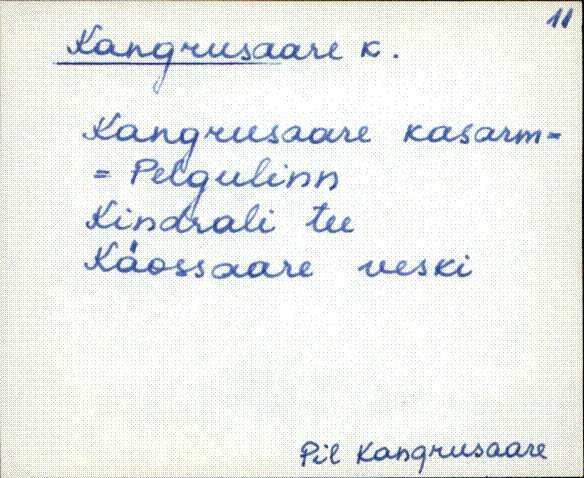 11
Kangrusaare k.
Kangrusaare kasarm-
= Pelgulinn
Kindrali tee
Käossaare veski
Pil Kangrusaare